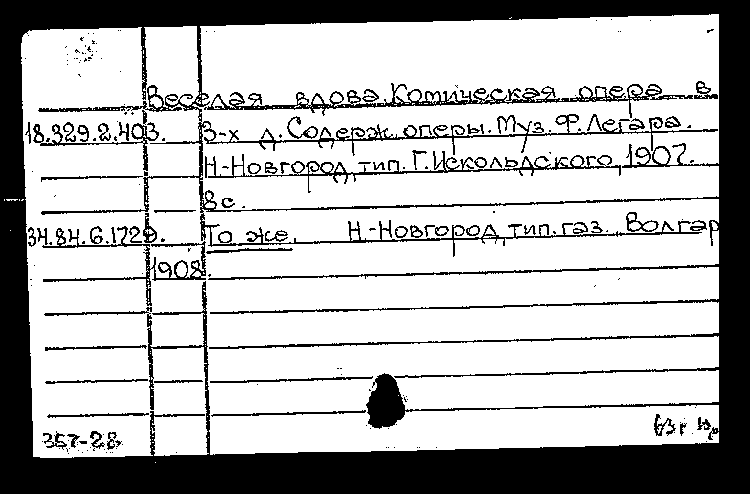 Веселая вдова. Комическая опера в
18.329.2.403. 3-х д. Содерж. оперы. Муз. Ф. Легара.
Н-Новгород, тип. Г. Искольдского, 1907.
8 с.
34.84.6.1729. То же. Н-Новгород, тип. газ. Волгар
1908.
357-28